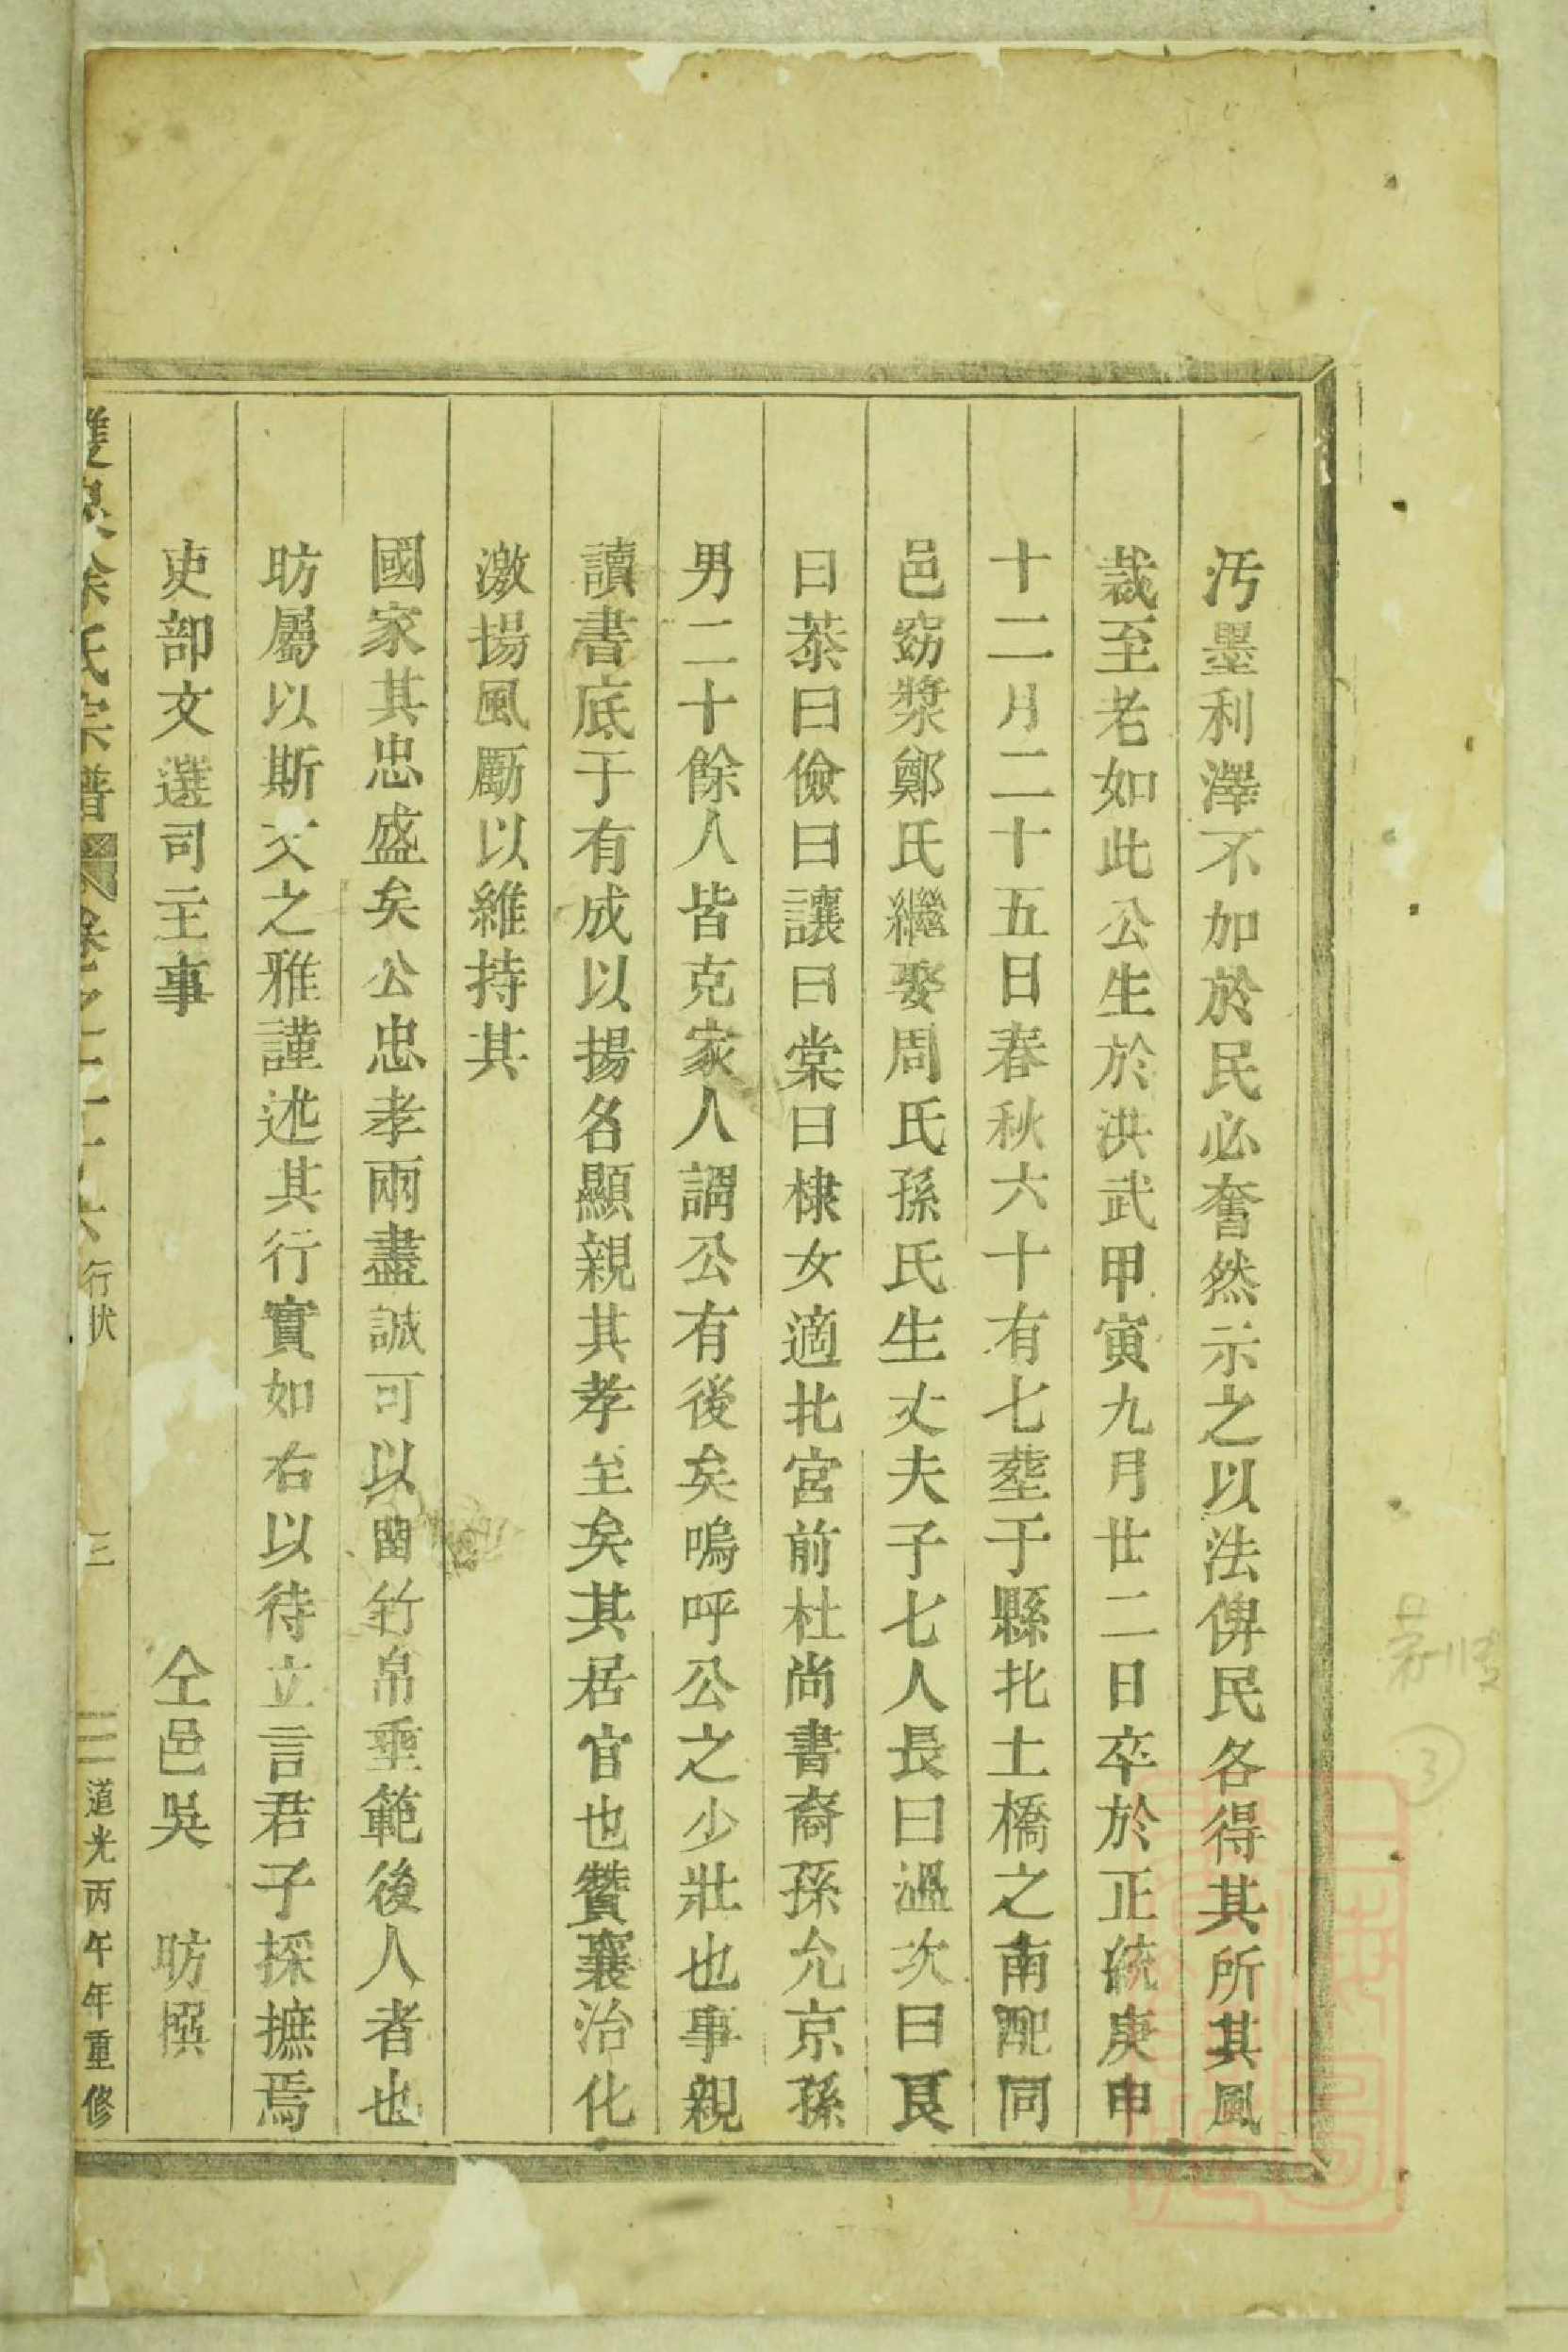 汚墨利澤不加於民必奮然示之以法俾民各得其所其風
裁至老如此公生於洪武甲寅九月廿二日卒於正統庚申
十二月二十五日春秋六十有七塟于縣北土橋之南配同
邑窈槳鄭氏繼娶周氏孫氏生丈夫子七人長曰溫次曰良
曰恭曰儉曰讓曰棠曰棣女適北宮前杜尚書裔孫允京孫
男二十餘人皆克家人謂公有後矣嗚呼公之少壯也事親
讀書底于有成以揚名顯親其孝至矣其居官也贊襄治化
激揚風勵以維持其
國家其忠盛矣公忠孝兩盡誠可以畱竹帛埀範後人者也
昉屬以斯文之雅謹述其行實如右以待立言君子採摭焉
吏部文選司主事 仝邑吳 昉撰
徐氏宗譜 卷之二十六 行狀 三 道光丙午年重修
③